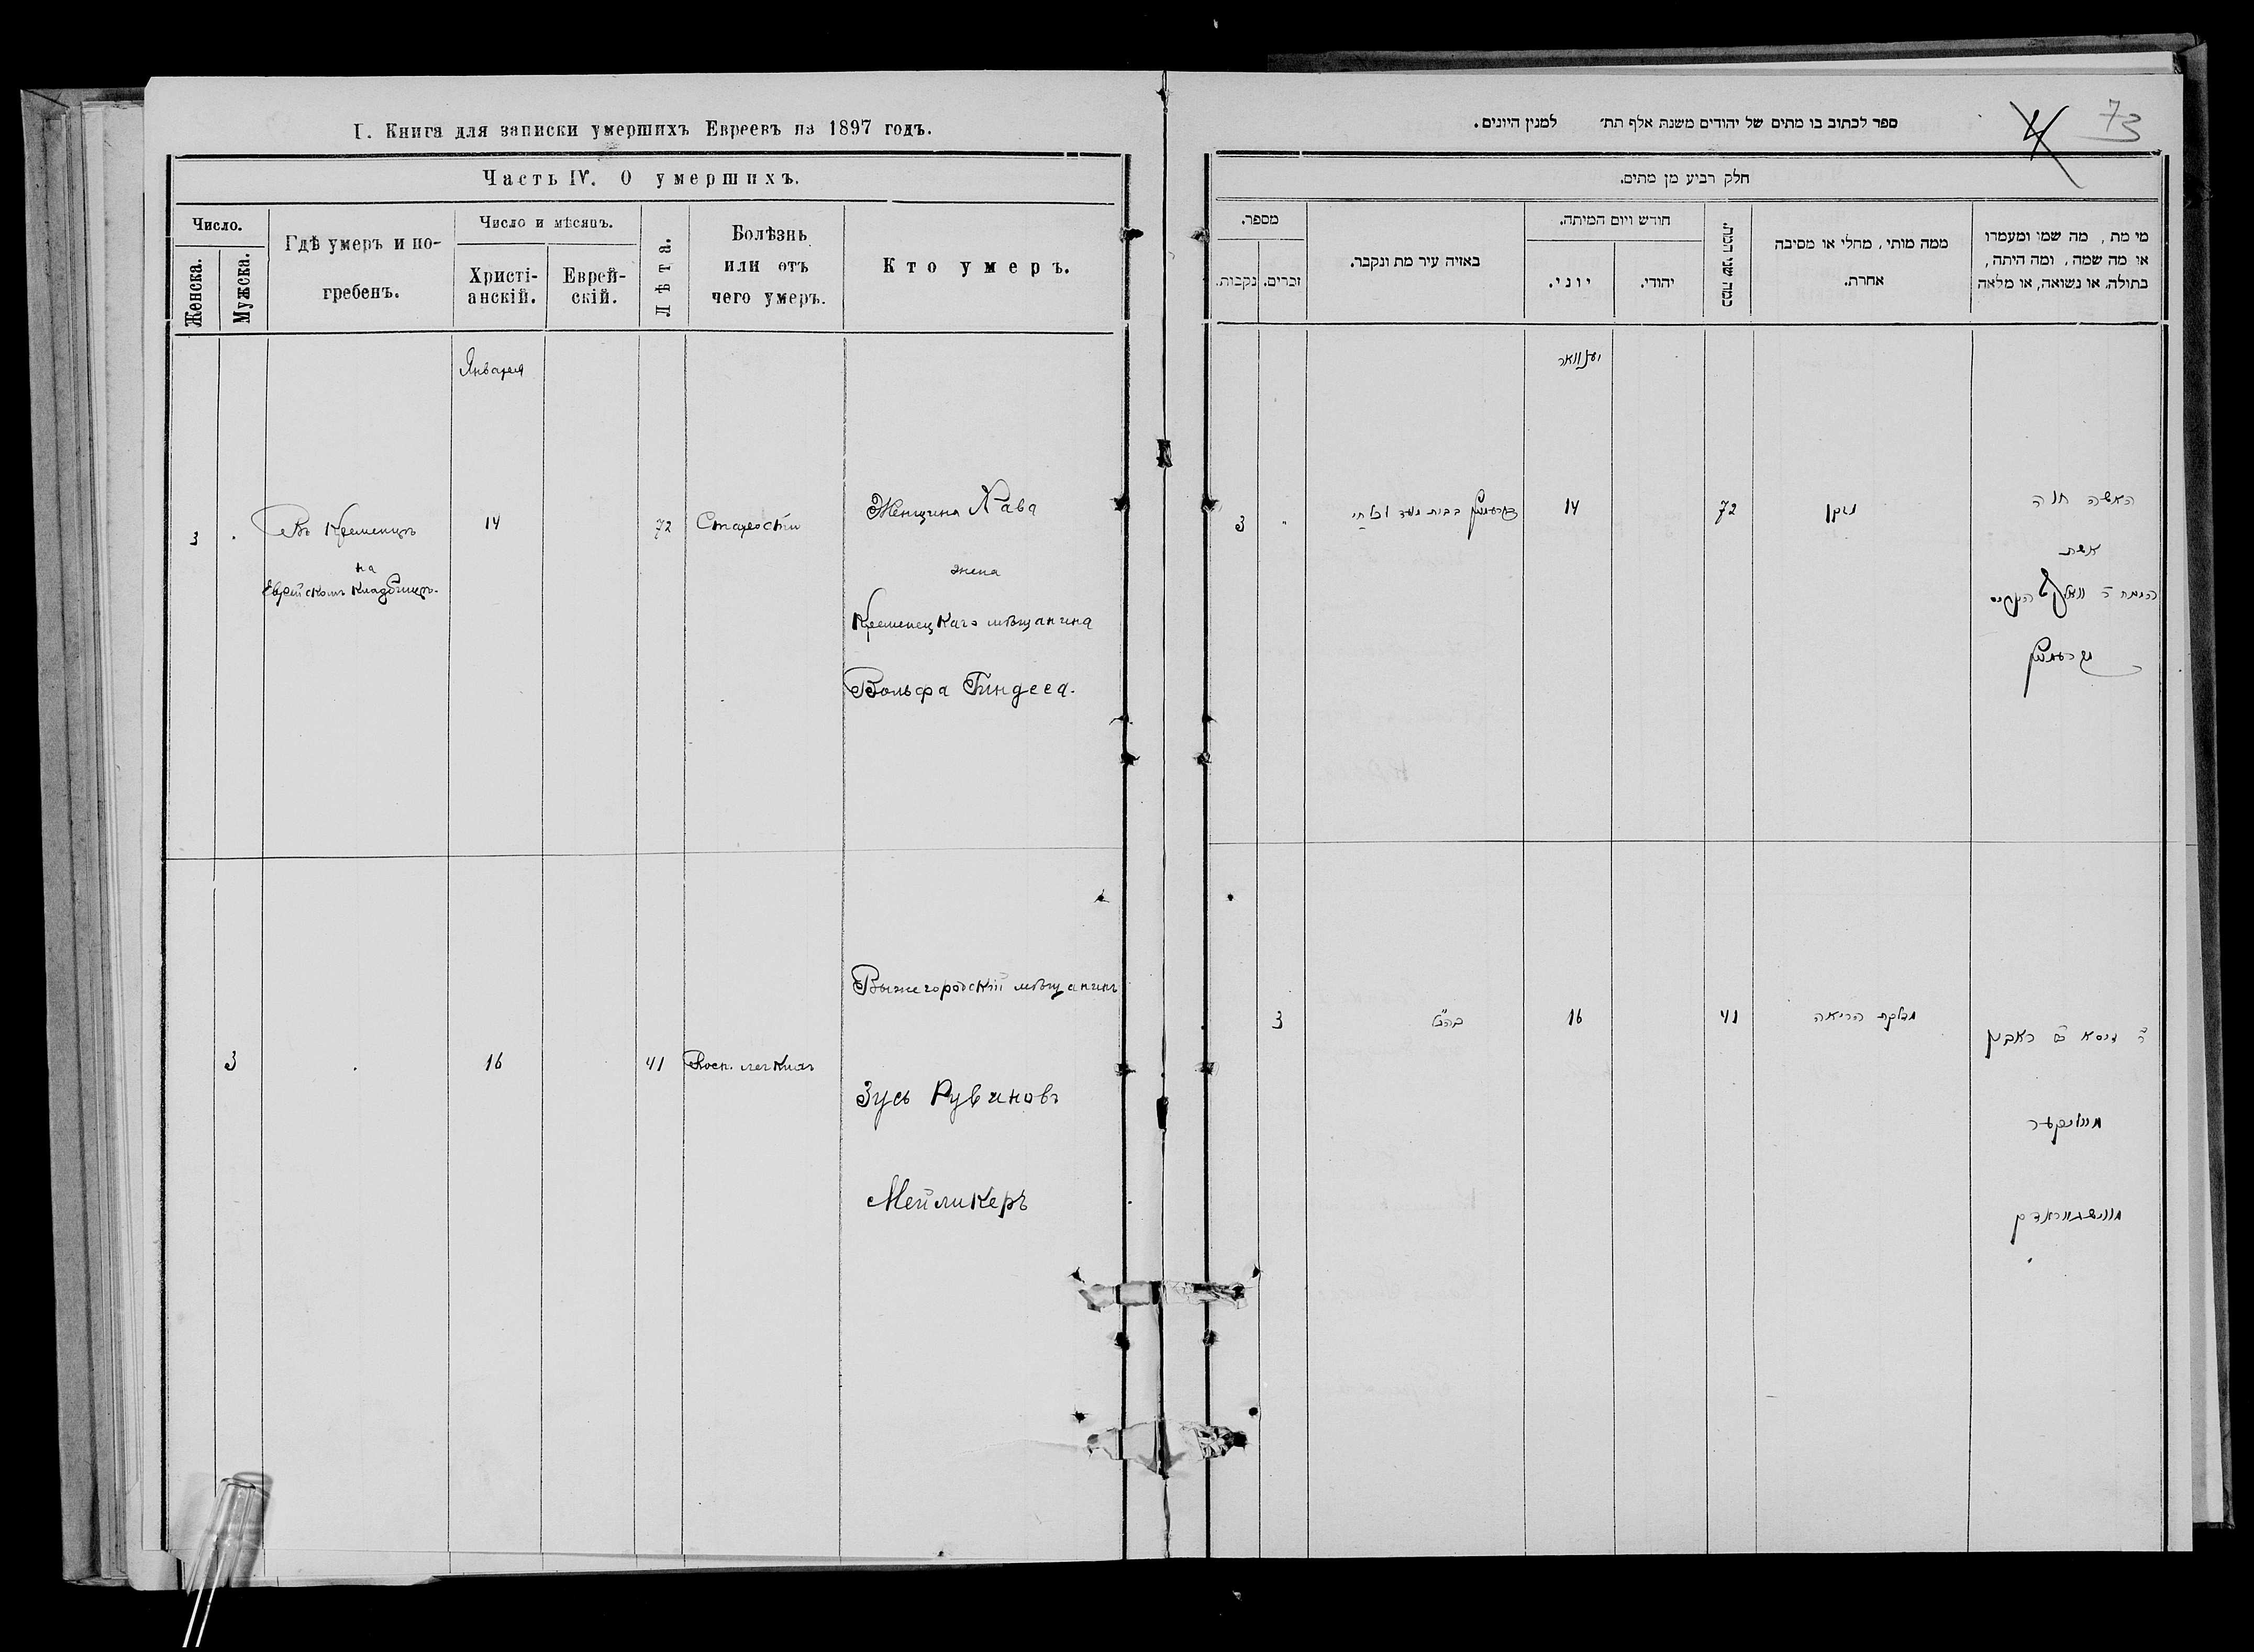 I. Книга для записки умершихъ Евреевъ на 1897 годъ.
Часть IV. О умершихъ.
Число.
Женска.
Мужска.
Гдѣ умеръ и по-
гребенъ.
Число и мѣсяцъ.
Христі-
анскій.
Еврей-
скій.
Лѣта.
Болѣзнь
или отъ
чего умеръ.
Кто умеръ.
Января
3
Въ Кременцѣ
на
Еврейскомъ кладбищѣ.
14
72
Старости
Женщина Хава
жена
Кременецкаго мѣщанина
Вольфа
3
16
41
Восп. легкихъ
Вышегородскій мѣщанинъ
Зусь Рувиновъ
Мейликеръ
73
4
ספר לכתוב בו מתים של יהודים משנת אלף תת׳ למנין היונים.
חלק רביע מן מתים.
מספר.
נקבות.
זכרים.
באיזה עיר מת ונקבר.
חודש ויום המיתה.
יוני.
יהודי.
כמה שני המת.
ממה מותי, מחלי או מסיבה
אחרת.
מי מת, מה שמו ומעמדו
או מה שמה, ומה היתה,
בתולה, או נשואה, או מלאה
יענוואר
3
14
72
זקן
האשה חוה
אשת
3
16
41
דלקת הריאה